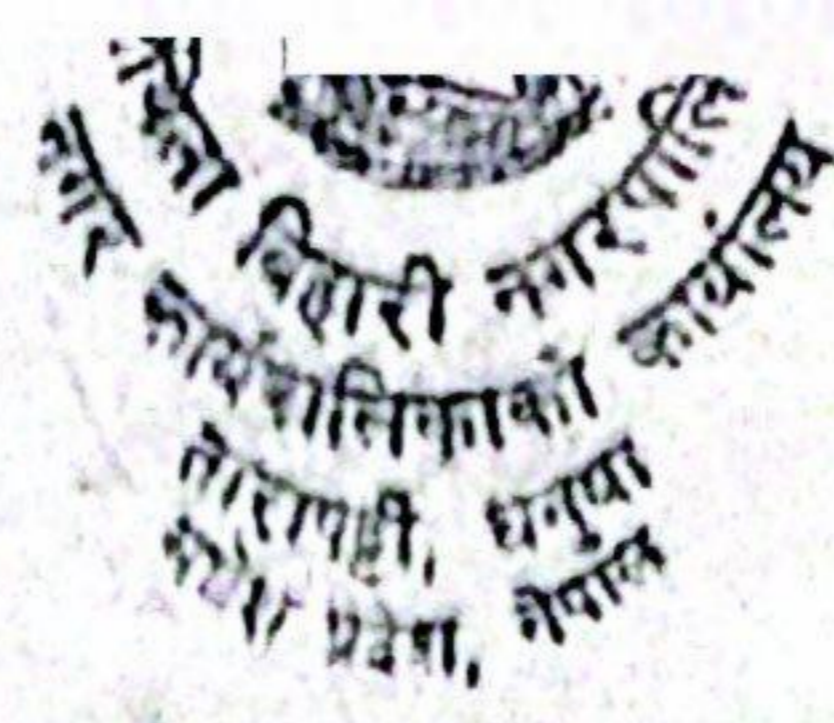 बिहारी नगरपालि
नगर कार्यपालिकाको कार्यालय
तारापट्टी, धनुषा
मधेश प्रदेश, नेपाल